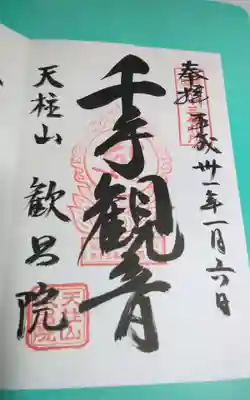 奉拝 平成卅一年一月六日
千手観音
天柱山 歓昌院
天柱山